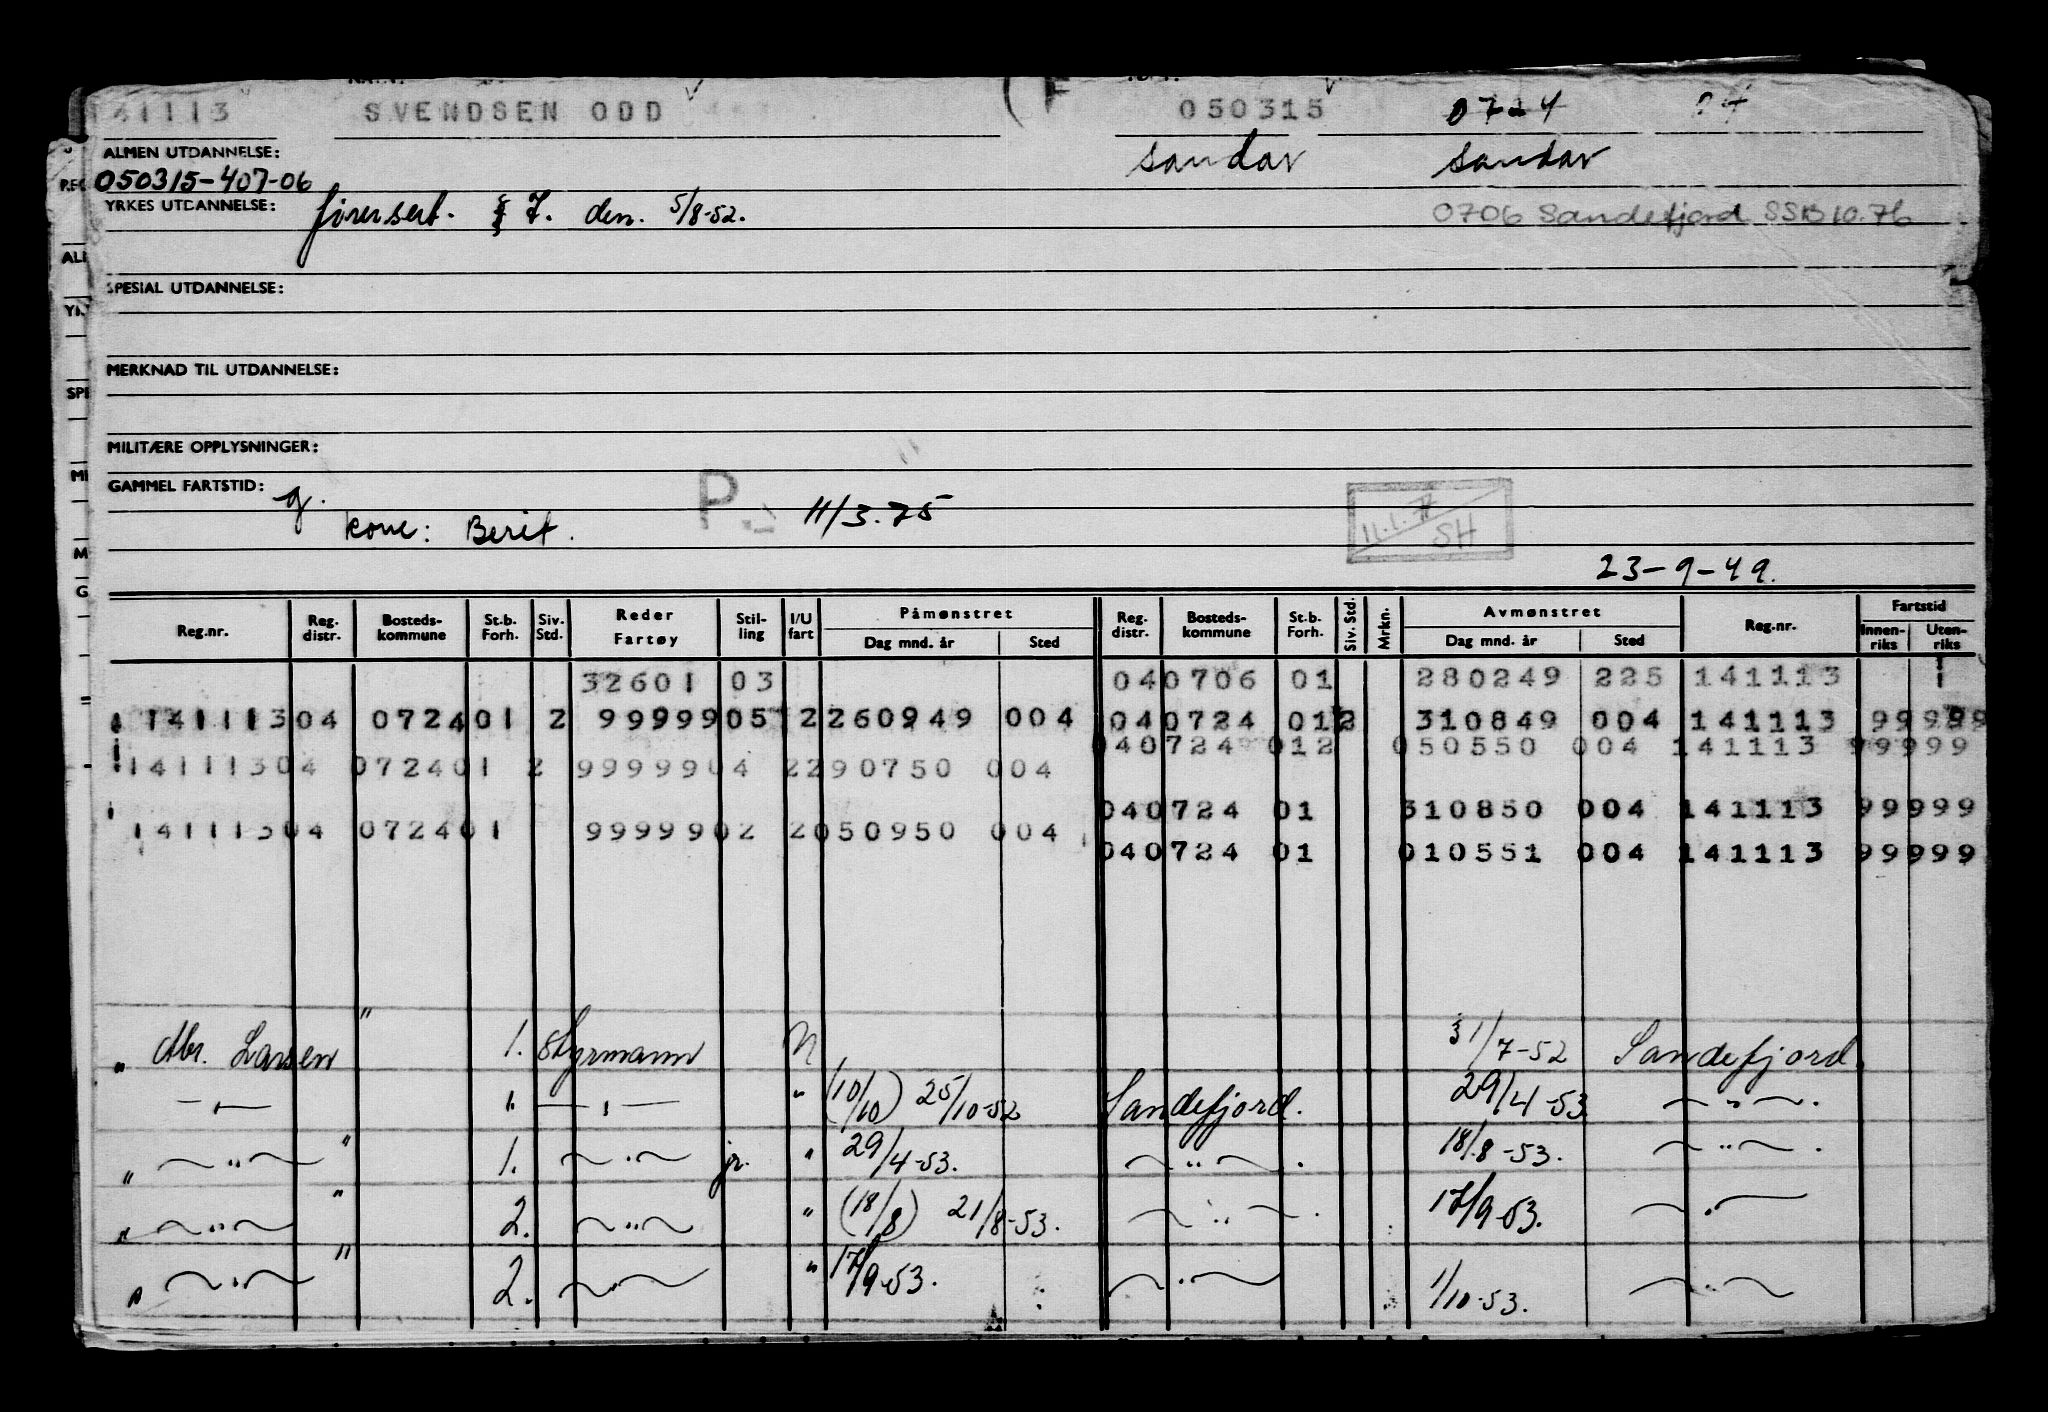 141113 SVENDSEN ODD 050315 0724
ALMEN UTDANNELSE: Sandar Sandar
050315-407-06
YRKES UTDANNELSE: førersert. § 7. den. 5/8-52. 0706 Sandefjord SSB 10.76
SPESIAL UTDANNELSE:
MERKNAD TIL UTDANNELSE:
MILITÆRE OPPLYSNINGER:
GAMMEL FARTSTID: g.
kone: Berit. P 11/3.75 11.1.77 SH
23-9-49.
Reg.nr. Reg. distr. Bosteds-kommune St.b. Forh. Siv. Std. Reder Fartøy Stil-ling I/U fart Påmønstret Dag mnd. år Sted Reg. distr. Bosteds-kommune St.b. Forh. Siv. Std. Mrkn. Avmønstret Dag mnd. år Sted Reg.nr. Fartstid Innen-riks Uten-riks
32601 03 040706 01 280249 225 141113
141113 04 072401 2 99999 05 2 260949 004 040724 012 310849 004 141113 99999
040724 012 050550 004 141113 99999
141113 04 072401 2 99999 04 2 290750 004
040724 01 310850 004 141113 99999
141113 04 072401 99999 02 2 050950 004
040724 01 010551 004 141113 99999
" Abr. Larsen " 1. Styrmann N 31/7-52 Sandefjord.
—"— 1. —"— " (10/10) 25/10-52 Sandefjord. 29/4-53 —"—.
" —"— " 1. —"— jr. " 29/4-53. —"—. 18/8-53. —"—.
" —"— " 2. —"— " (18/8) 21/8-53. —"—. 17/9-53. —"—
" —"— " 2. —"— " 17/9-53. —"— 1/10-53. —"—